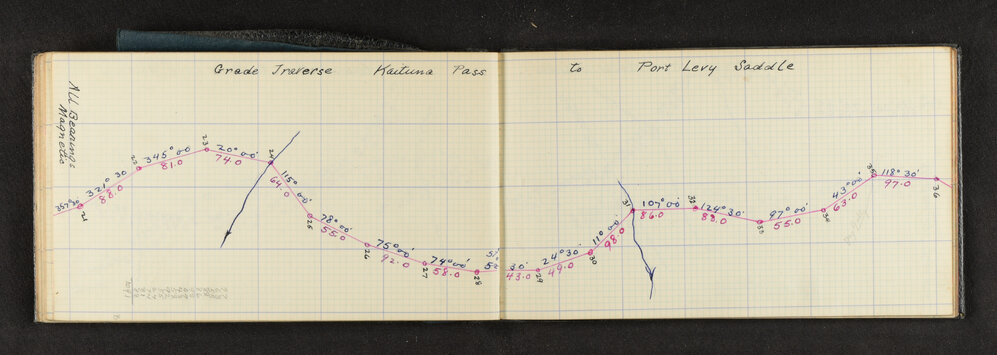 Grade Traverse Kaituna Pass to Port Levy Saddle
All Bearings
Magnetic
357°30
21
321° 30
88.0
22
345° 00'
81.0
23
20° 00'
74.0
24
115° 00'
64.0
25
78° 00'
55.0
26
75° 00'
92.0
27
74° 00'
58.0
28
52° 30'
43.0
29
24° 30'
49.0
30
11° 00'
98.0
31
107° 00'
86.0
32
124° 30'
83.0
33
97° 00'
55.0
34
43° 00'
63.0
35
118° 30'
97.0
36